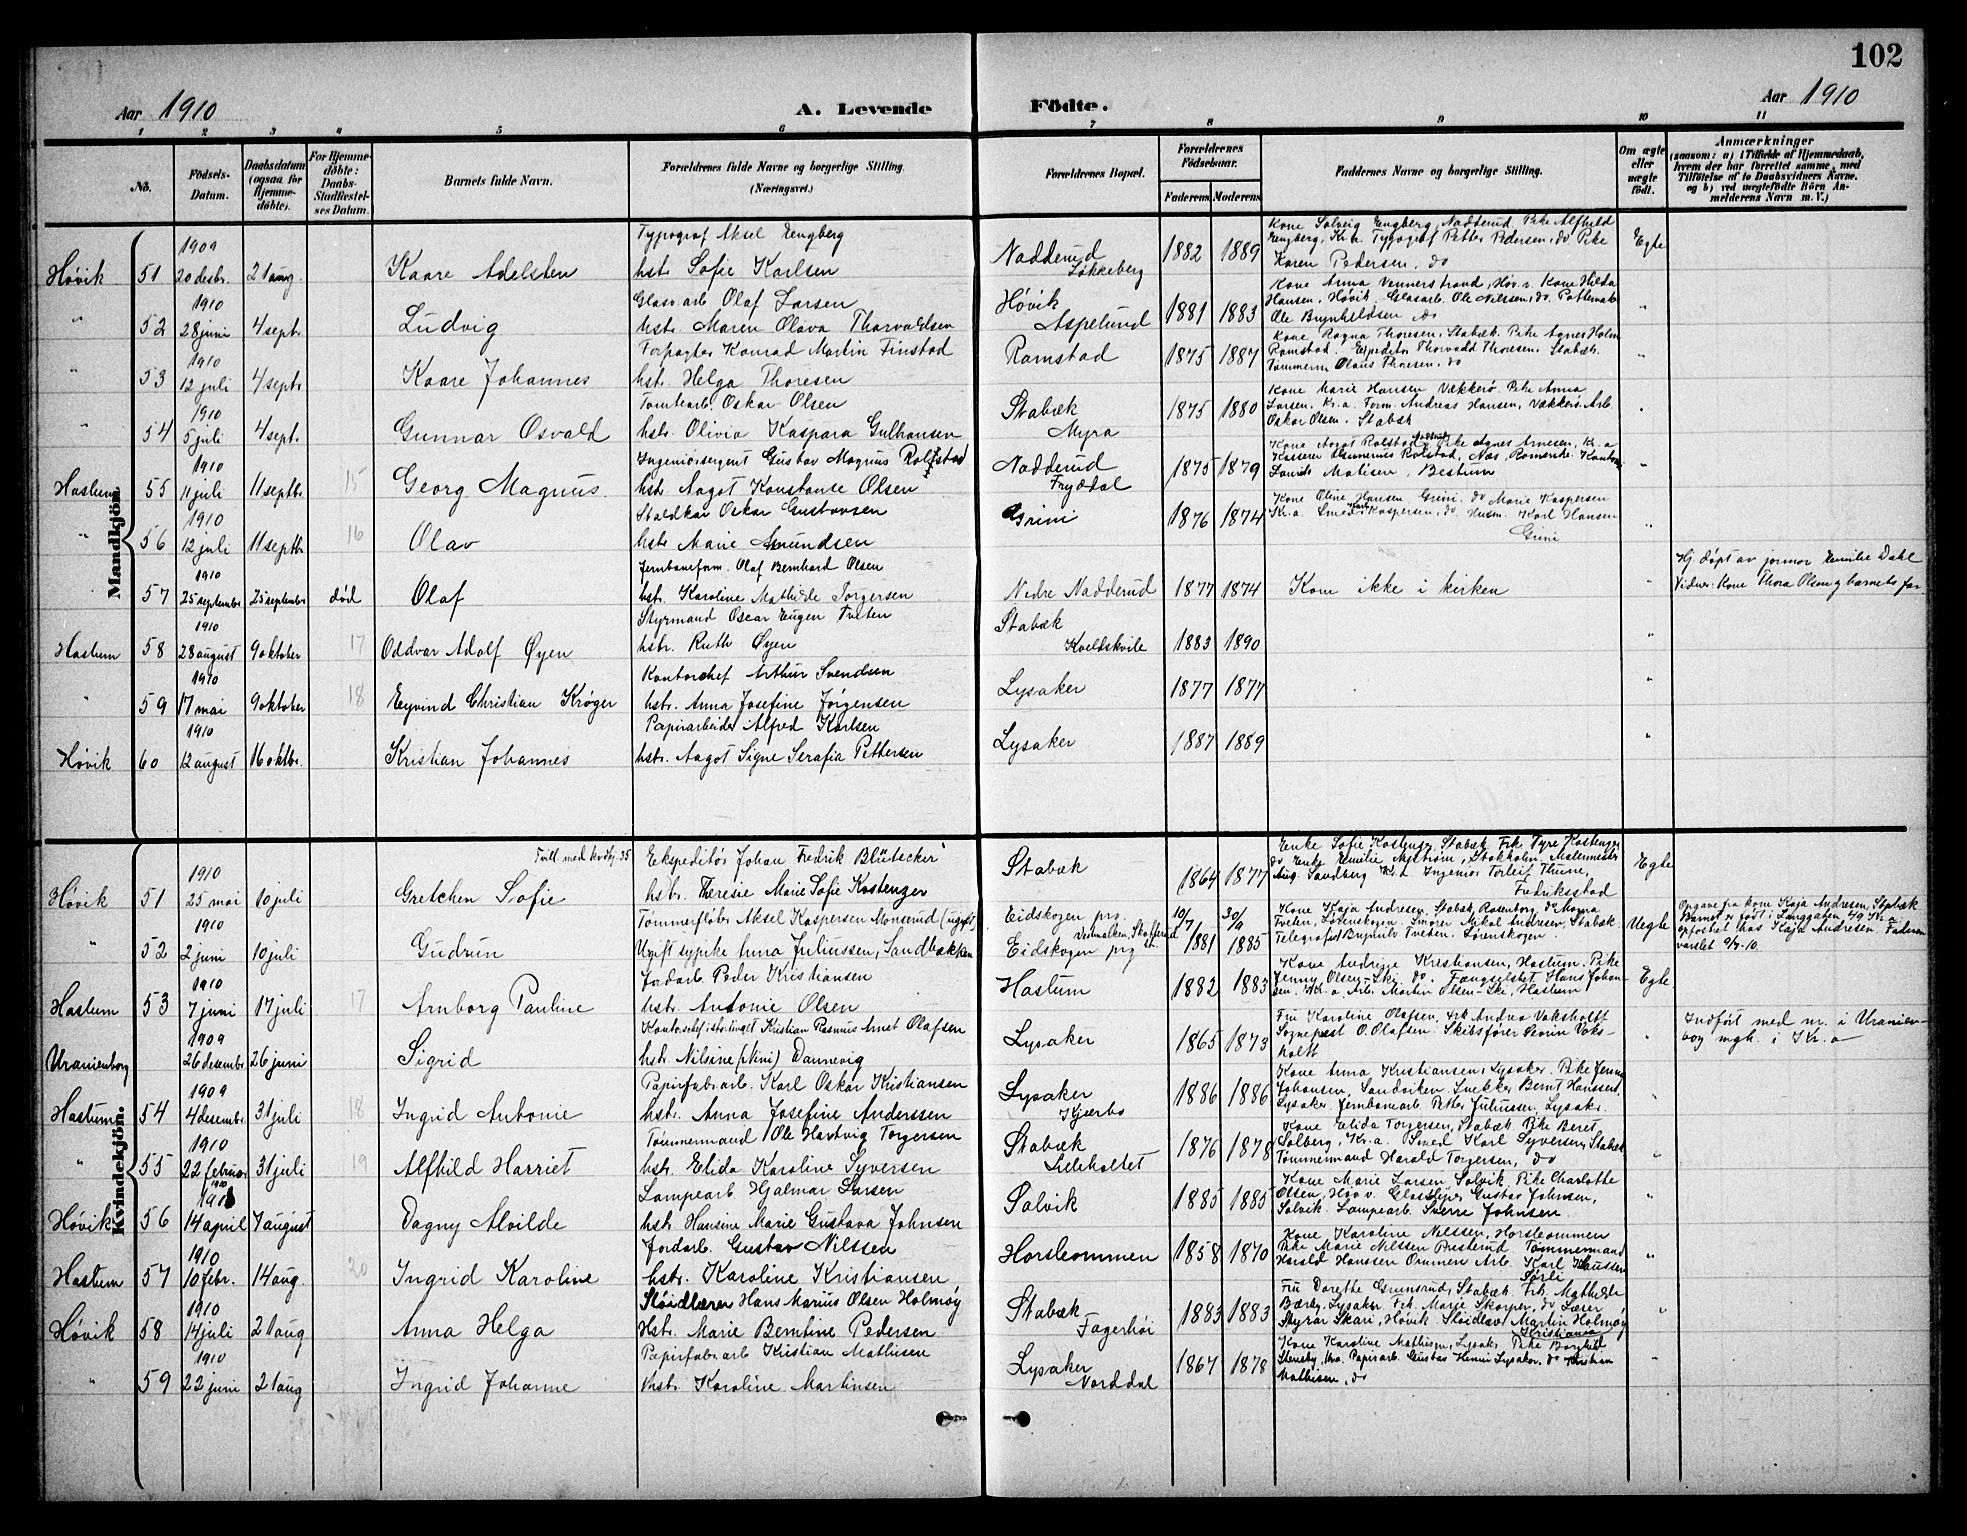 102
Aar 1910
A. Levende Födte.
Aar 1910
1 2 3 4 5 6 7 8 9 10 11
No.
Födsels-Datum.
Daabsdatum (ogsaa for Hjemmedöbte).
For Hjemmedöbte: Daabs-Stadfæstelses Datum.
Barnets fulde Navn.
Forældrenes fulde Navne og borgerlige Stilling. (Næringsvei.)
Forældrenes Bopæl.
Forældrenes Födselsaar.
Faderens Moderens
Faddernes Navne og borgerlige Stilling.
Om ægte eller uægte födt.
Anmærkninger
(saasom: a) i Tilfælde af Hjemmedaab, hvem der har forrettet samme, med Tilföielse af to Daabsvidners Navne, og b) ved uægtefödte Börn Anmelderens Navn m. V.)
Mandkjön.
Høvik 51 1909 20 desbr. 21 aug. Kaare Adelsten
Typograf Aksel Engberg
hstr. Sofie Karlsen
Nadderud Løkkeberg 1882 1889
Kone Solveig Engberg, Nadderud. Pike Alfhild
Engberg, Kr.a. Typograf Petter Pedersen, do Pike
Karen Pedersen, do
Egte
" 52 1910 28 juni 4 sept. Ludvig
Glasv.arb Olaf Larsen
hstr. Maren Olava Thorvaldsen
Høvik Aspelund 1881 1883
Kone Anna Vennerstrand, Høv.v. Kone Hilda
Hansen, Høvik. Glasarb. Ole Nilsen, do.
Ole Brynhildsen, do
"
" 53 1910 12 juli 4 sept. Kaare Johannes
Forpagter Konrad Martin Finstad
hstr. Helga Thoresen
Ramstad 1875 1887
Kone Ragna Thoresen, Stabæk. Pike Agnes Holm
Ramstad. Expeditør Thorvald Thoresen, Stabæk.
Tømmerm Olaus Thoresen, do
"
" 54 1910 5 juli 4 sept. Gunnar Osvald
Tomtearb. Oskar Olsen
hstr. Olivia Kaspara Gulhansen
Stabæk Myra 1875 1880
Kone Marie Hansen Vækkerø. Pike Anna
Larsen, Kr.a. Form. Andreas Hansen, Vækkerø. Arb.
Oskar Olsen, Stabæk
"
Haslum 55 1910 11 juli 11 septbr. 15 Georg Magnus
Ingeniørsergent Gustav Magnus Rolfstad
hstr. Aagot Konstanse Olsen
Nadderud Fryddal 1875 1879
Kone Aagot Rolstad, Pike Agnes Arnesen, Kr.a
Rolstad, Næs, Romerike.
Matisen, Bestum
"
" 56 1910 12 juli 11 septbr. 16 Olav
Staldkar Oskar Gustavsen
hstr. Marie Amundsen
Grini 1876 1874
Kone Oline Hansen Grini. do Marie Kaspersen
Kr.a. Smed Karl Kaspersen, do. Husm. Karl Hansen
Grini
"
57 1910 25 september 25 september død Olaf
Jernbaneform. Olaf Bernhard Olsen
hstr. Karoline Mathilde Torgersen
Nedre Nadderud 1877 1874
Kom ikke i kirken
"
Hj døpt av jormor Emilie Dahl
Vidner: Kone Thora Olsen og barnets far
Haslum 58 1910 28 august 9 oktober 17 Oddvar Adolf Øyen
Styrmand Oscar Eugen Tveten
hstr. Ruth Øyen
Stabæk Kveldskvile 1883 1890
"
" 59 1910 17 mai 9 oktober 18 Eyvind Christian Krøger
Kontorchef Arthur Svendsen
hstr. Anna Josefine Jørgensen
Lysaker 1877 1877
"
Høvik 60 1910 12 august 16 oktbr. Kristian Johannes
Papirarbeider Alfred Karlsen
hstr. Aagot Signe Serafia Pettersen
Lysaker 1887 1889
"
Kvindekjön.
Høvik 51 1910 25 mai 10 juli Gretchen Sofie
Tvill. med 35
Ekspeditør Johan Fredrik Blütecker
hstr. Therese Marie Sofie Kostenger
Stabæk 1864 1877
Enke Sofie Kostenger, Stabæk. Frk Tyre Kostenger
do Enke Emilie Nystrøm, Stokholm, Malermester
Aug. Sandberg Kr.a Ingeniør Torleif Thime,
Fredriksstad
Egte
" 52 1910 2 juni 10 juli Gudrun
Tømmerfløter Aksel Kaspersen Monserud (ugift)
Ugift sypike Anna Juliussen, Sandbakken
Eidskogen prg.
Eidskogen prg
10/7 1881 30/9 1885
Kone Kaja Andresen, Stabæk, Rosenborg, do Magna
Tveten, Lørenskogen. Snører Mikal Andresen, Stabæk
Telegrafist Brynulv Tveten, Lørenskogen
Uegte
Opgave fra kone Kaja Andresen, Stabæk
Barnet er født i Langgaten 49 Kr.a.
opfostret hos Kaja Andresen. Faderen
varslet 9/7-10.
Haslum 53 1910 7 juni 17 juli 17 Arnborg Pauline
Jordarb. Peder Kristiansen
hstr. Antonie Olsen
Haslum 1882 1883
Kone Andrine Kristiansen, Haslum. Pike
Jenny Olsen-Ski, do. Fængselsbet. Hans Johansen, Kr.a Arb. Martin Olsen-Ski, Haslum
Egte
Uranienborg 1909 26 desember 26 juni Sigrid
Kontorchef i stortinget Kristian Rasmus Arnet Olafsen
hstr. Nilsine (Nini) Dannevig
Lysaker 1865 1873
Fru Karoline Olafsen, Frk Andrea Voksholtt
Sogneprest O. Olafsen. Skibsfører Voksholtt
"
Indført med nr. i Uranienborg mgh. i Kr.a
Haslum 54 1909 4 desembr 31 juli 18 Ingrid Antonie
Papirfabr.arb. Karl Oskar Kristiansen
hstr. Anna Josefine Anderssen
Lysaker Kjærbo 1886 1886
Kone Anna Kristiansen, Lysaker. Pike Jenny
Johansen, Sandviken. Snekker Bernt Hanssen,
Lysaker. Jernbanearb Petter Juliussen, Lysaker.
"
" 55 1910 22 februar 31 juli 19 Alfhild Harriet
Tømmermand Ole Hartvig Torgersen
hstr. Elida Karoline Syversen
Stabæk Lilleholtet 1876 1878
Kone Elida Torgersen, Stabæk Pike Beret
Solberg, Kr.a. Smed Karl Syversen, Stabæk
Tømmermand Harald Torgersen, do
"
Høvik 56 1910 14 april 7 august Dagny Alvilde
Lampearb Hjalmar Larsen
hstr. Hansine Marie Gustava Johnsen
Solvik 1885 1885
Kone Marie Larsen Solvik, Pike Charlotte
Olsen, Høv v. Glassliper Gustav Johnsen,
Solvik. Lampearb. Sverre Johnsen.
"
Haslum 57 1910 10 febr. 14 aug 20 Ingrid Karoline
Jordarb. Gustav Nilssen
hstr. Karoline Kristiansen
Horsleommen 1858 1870
Kone Karoline Nilssen, Horsleommen
Pike Marie Nilssen Presterud Tømmermand
Harald Hanssen Ommen Arb. Karl Klaussen
Sørli
"
Høvik 58 1910 14 juli 21 aug Anna Helga
Sløidlærer Hans Marius Olsen Holmøy
Hstr. Marie Berntine Pedersen
Stabæk Fagerhøi 1883 1883
Fru Dorette Grønsrud, Stabæk Frk. Mathilde
Bærby, Lysaker Frk. Marie Skorpen, do Lærer
Styrar Skari, Høvik Sløidlær Martin Holmøy
Kristiania
"
" 59 1910 22 juni 21 aug Ingrid Johanne
Papirfabr.arb Kristian Mathisen
Hstr. Karoline Martinsen
Lysaker Norddal 1867 1878
Kone Karoline Mathisen, Lysak. Pike Borghild
Stensby, Papirarb. Gustav Lysaker. do Kristian
Mathisen, do
"